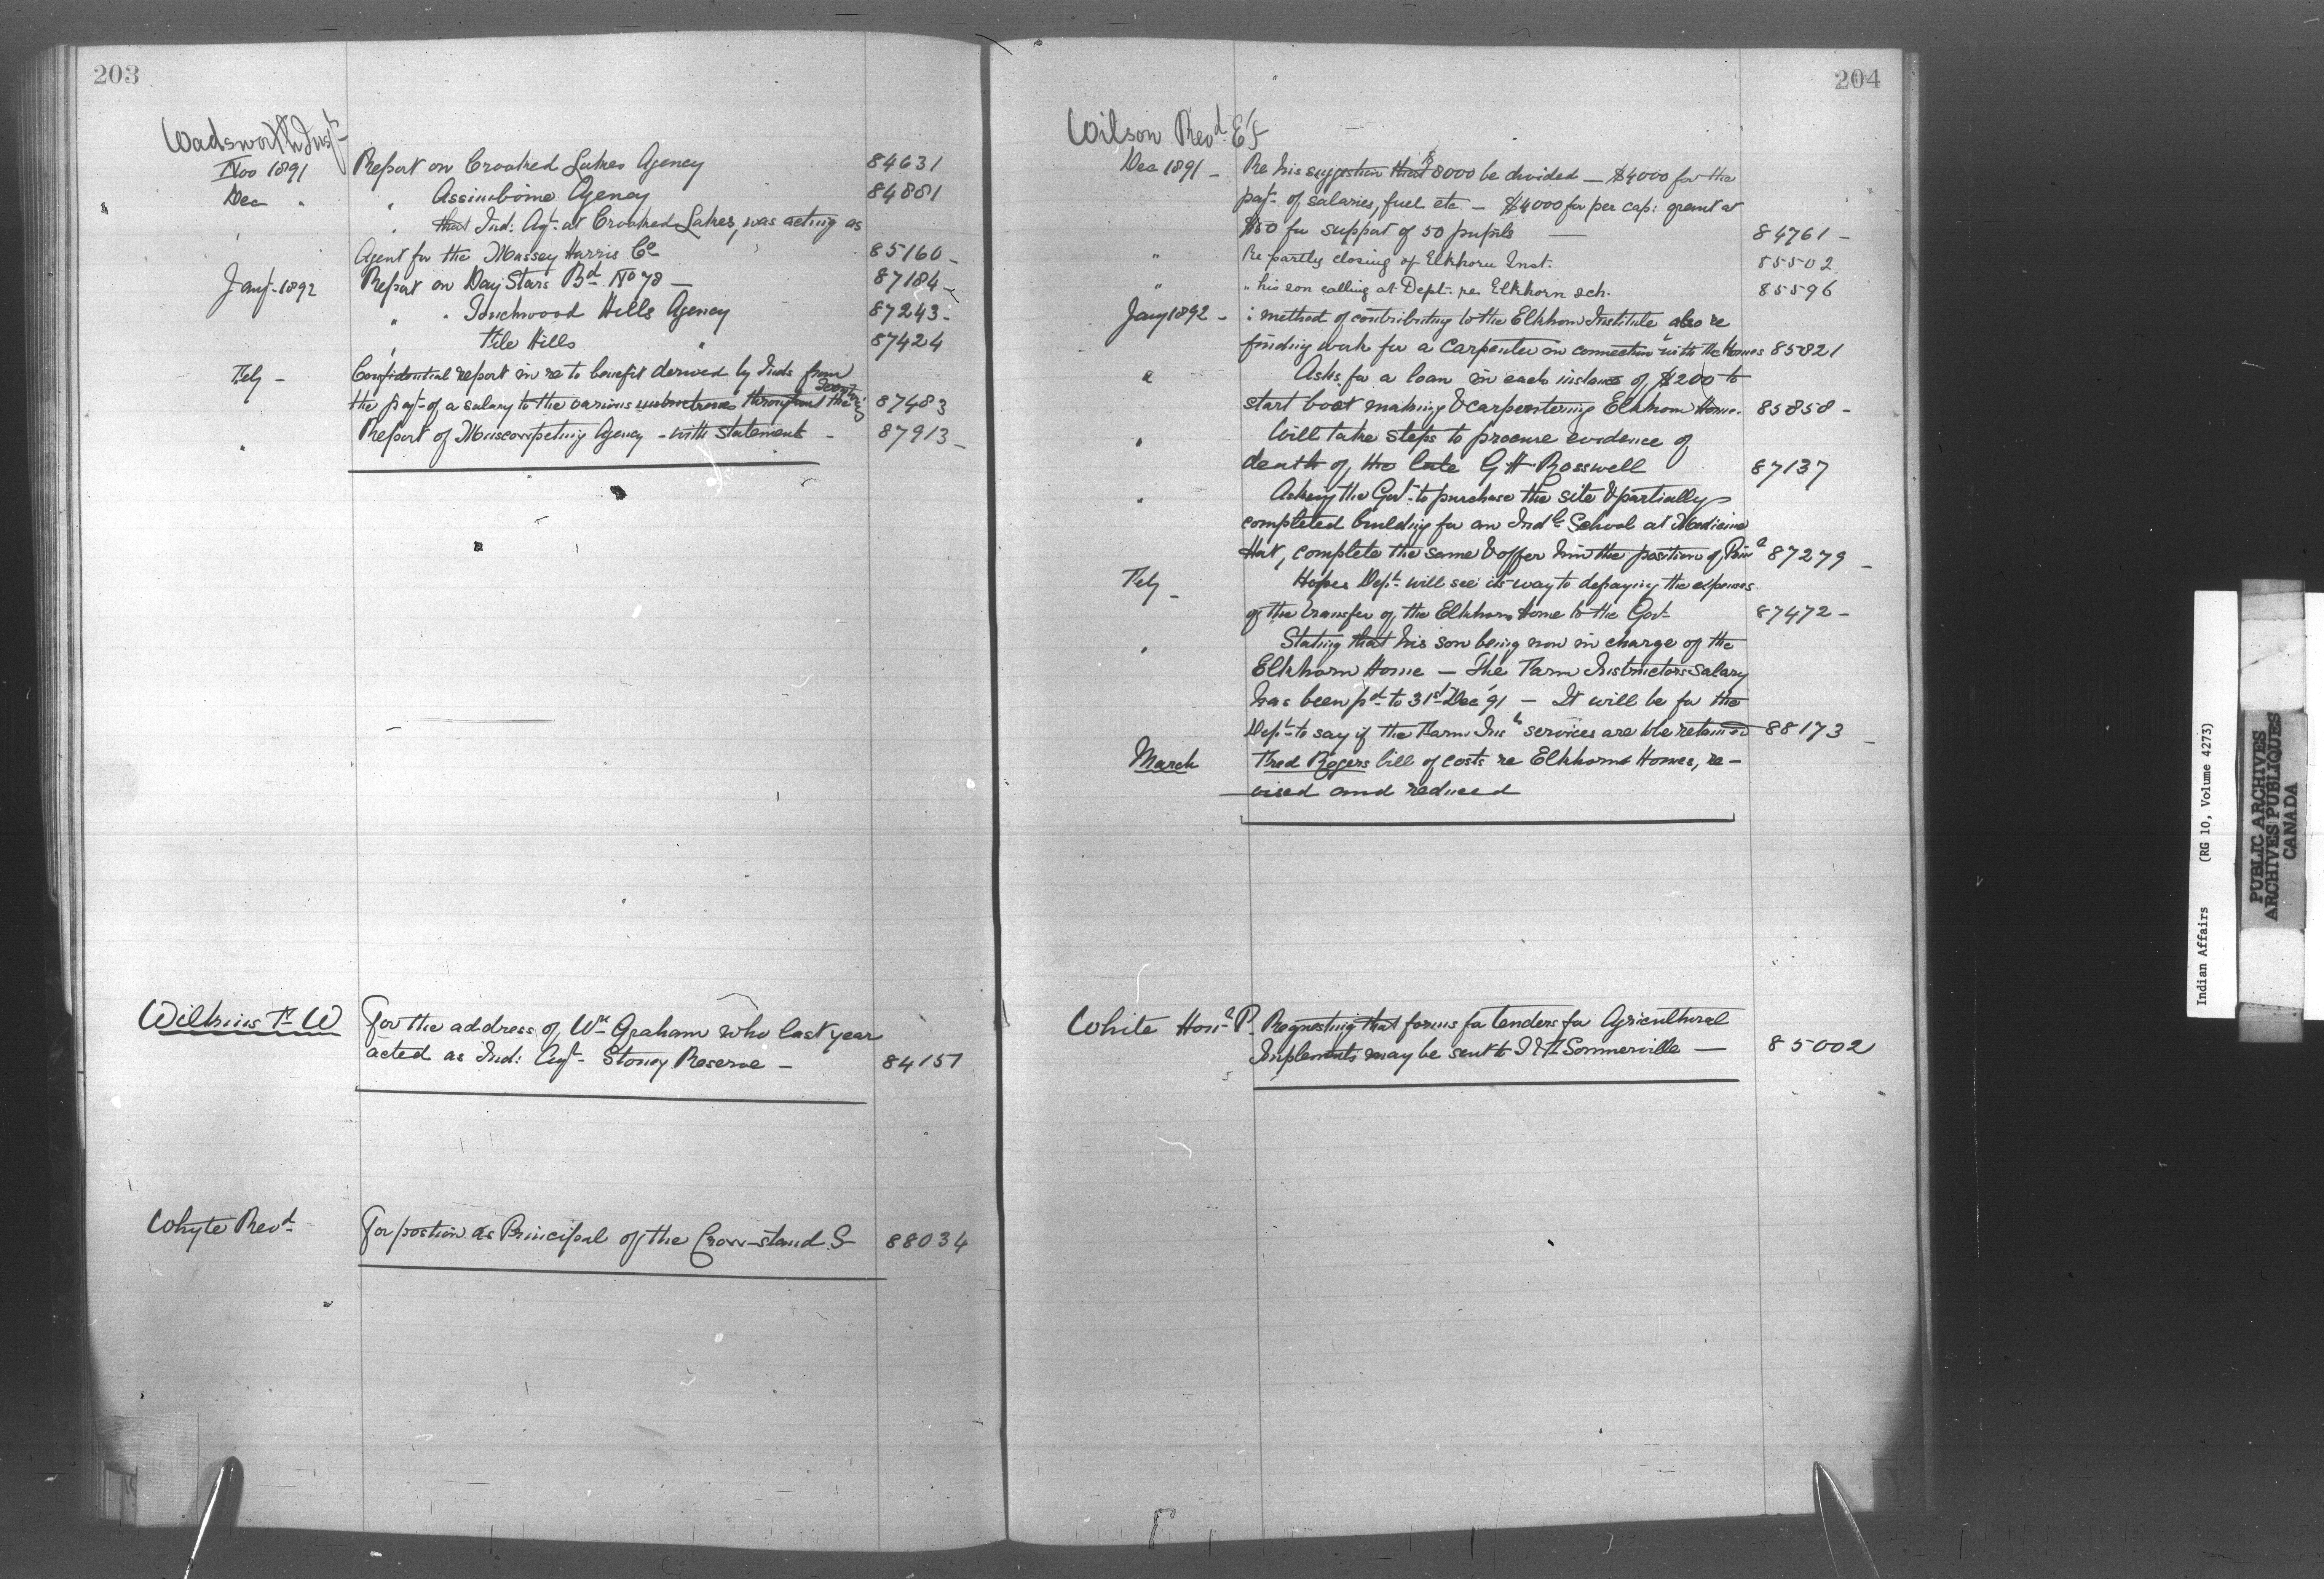 203
Wadsworth Inspr
Nov 1891 Report on Crooked Lakes Agency 84631
Dec " " Assiniboine Agency 84881
" " that Ind: Agt. at Crooked Lakes, was acting as
Agent for the Massey Harris Co 85160 -
Jany. 1892 Report on Day Stars Bd No 78 — 87184 -
" " Touchwood Hills Agency 87243 -
" File Hills " 87424
Feby - Confidential report in re to benefit derived by Inds from
the payt. of a salary to the various instructresses throughout the 87483
" Report of Muscowpetung Agency - with statements - 87913 -
Wilkins F. W For the address of Wm Graham who last year
acted as Ind: Agt. Stoney Reserve - 84151
Whyte Revd. For postion as Principal of the Crow-stand S 88034
204
Wilson Revd. E F
Dec 1891 - Re his suggestion that $8000 be divided — $4000 for the
payt. of salaries, fuel etc — $4000 for per cap: grant at
$50 for support of 50 pupils — 84761 -
" Re partly closing of Elkhorn Inst. 85502
" " his son calling at Dept. re Elkhorn sch. 85596
Jany 1892 - : method of contributing to the Elkhorn Institute also re
finding work for a carpenter in connection with the Homes 85821
" Asks for a loan in each instance of $200 to
start boot making & carpentering Elkhorn Home. 85858 -
" Will take steps to procure evidence of
death of the late G H Rosswell 87137
" Asking the Govt. to purchase the site & partially
completed building for an Indl. School at Medicine
Hat, complete the same & offer him the position of Prinl 87279 -
Feby - Hopes Dept. will see its way to defraying the expenses
of the transfer of the Elkhorn Home to the Govt. 87472 -
" Stating that his son being now in charge of the
Elkhorn Home — The Farm Instructors Salary
has been pd. to 31st Dec '91 — It will be for the
Dept. to say if the Farm Insr services are to be retained 88173 -
March Fred Rogers bill of costs re Elkhorn Homes, re-
vised and reduced
White Honl P. Requesting that forms for tenders for Agricultural
Implements may be sent to J & H Sommerville — 85002
Indian Affairs (RG 10, Volume 4273)
PUBLIC ARCHIVES
ARCHIVES PUBLIQUES
CANADA